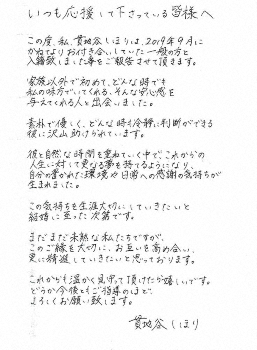 いつも応援して下さっている皆様へ
この度、私、貫地谷しほりは、2019年9月に
かねてよりお付き合いしていた一般の方と
入籍致しました事をご報告させて頂きます。
家族以外で初めて、どんな時でも
私の味方でいてくれる、そんな安心感を
与えてくれる人と出会いました。
素朴で優しく、どんな時も冷静に判断ができる
彼に沢山助けられています。
彼と自然な時間を重ねていく中で、これからの
人生に対して更なる夢を持てるようになり、
自分の置かれた環境や日常への感謝の気持ちが
生まれました。
この気持ちを生涯大切にしていきたいと
結婚に至った次第です。
まだまだ未熟な私たちですが、
このご縁を大切に、お互いを高め合い、
更に精進していきたいと思っております。
これからも温かく見守って頂けたら嬉しいです。
どうか今後ともご指導のほど、
よろしくお願い致します。
貫地谷しほり